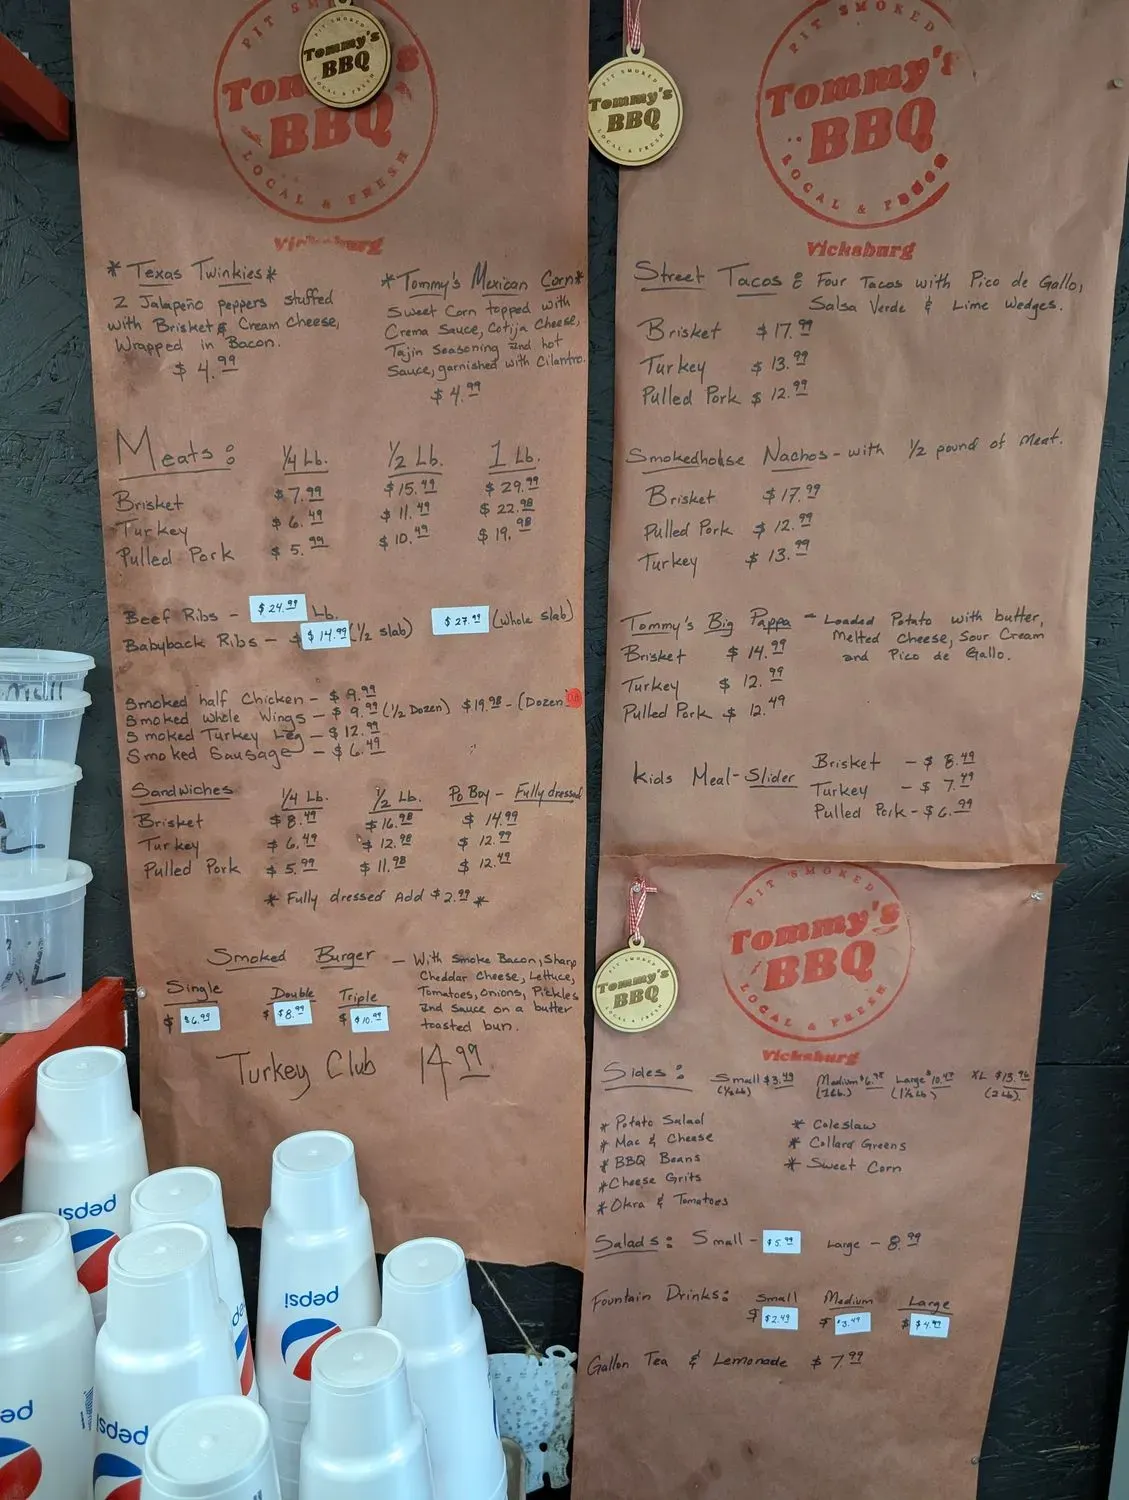 PIT SMOKED
Tommy's
BBQ
LOCAL & FRESH
Vicksburg
PIT SMOKED
Tommy's
BBQ
LOCAL & FRESH
* Texas Twinkies *
2 Jalapeño peppers stuffed
with Brisket & Cream Cheese,
Wrapped in Bacon.
$ 4.99
*Tommy's Mexican Corn*
Sweet Corn topped with
Crema Sauce, Cotija Cheese,
Tajin Seasoning and hot
Sauce, garnished with Cilantro.
$ 4.99
Meats: 1/4 Lb. 1/2 Lb. 1 Lb.
Brisket $ 7.99 $ 15.49 $ 29.99
Turkey $ 6.49 $ 11.49 $ 22.98
Pulled Pork $ 5.99 $ 10.49 $ 19.98
Beef Ribs - $ 24.99 Lb.
Babyback Ribs - $ $ 14.99 (1/2 slab) $ 27.99 (whole slab)
Smoked half Chicken - $ 9.99
Smoked whole Wings - $ 9.99 (1/2 Dozen) $19.98 - (Dozen)
Smoked Turkey Leg - $ 12.99
Smoked Sausage - $ 6.49
Sandwiches 1/4 Lb. 1/2 Lb. Po Boy - Fully dressed
Brisket $ 8.49 $ 16.98 $ 14.99
Turkey $ 6.49 $ 12.98 $ 12.99
Pulled Pork $ 5.99 $ 11.98 $ 12.49
* Fully dressed Add $ 2.99 *
Smoked Burger - With Smoke Bacon, Sharp
Cheddar Cheese, Lettuce,
Tomatoes, Onions, Pickles
and Sauce on a butter
toasted bun.
Single Double Triple
$ $6.99 $ $8.99 $ $10.99
Turkey Club 14.99
PIT SMOKED
Tommy's
BBQ
LOCAL & FRESH
Vicksburg
PIT SMOKED
Tommy's
BBQ
LOCAL & FRESH
Street Tacos: Four Tacos with Pico de Gallo,
Salsa Verde & Lime Wedges.
Brisket $ 17.99
Turkey $ 13.99
Pulled Pork $ 12.99
Smokedhouse Nachos - with 1/2 pound of meat.
Brisket $ 17.99
Pulled Pork $ 12.99
Turkey $ 13.99
Tommy's Big Pappa - Loaded Potato with butter,
Melted Cheese, Sour Cream
and Pico de Gallo.
Brisket $ 14.99
Turkey $ 12.99
Pulled Pork $ 12.49
Kids Meal - Slider
Brisket - $ 8.49
Turkey - $ 7.49
Pulled Pork - $ 6.99
PIT SMOKED
Tommy's
BBQ
LOCAL & FRESH
Vicksburg
PIT SMOKED
Tommy's
BBQ
LOCAL & FRESH
Sides: Small $3.49 Medium $6.98 Large $10.47 XL $13.96
(1/2 Lb) (1Lb.) (1 1/2 Lb) (2 Lb)
* Potato Salad
* Mac & Cheese
* BBQ Beans
* Cheese Grits
* Okra & Tomatoes
* Coleslaw
* Collard Greens
* Sweet Corn
Salads: Small - $5.99 Large - 8.99
Fountain Drinks: Small Medium Large
$ $2.49 $ $3.49 $ $4.49
Gallon Tea & Lemonade $ 7.99
pepsi
pepsi
pepsi
pepsi